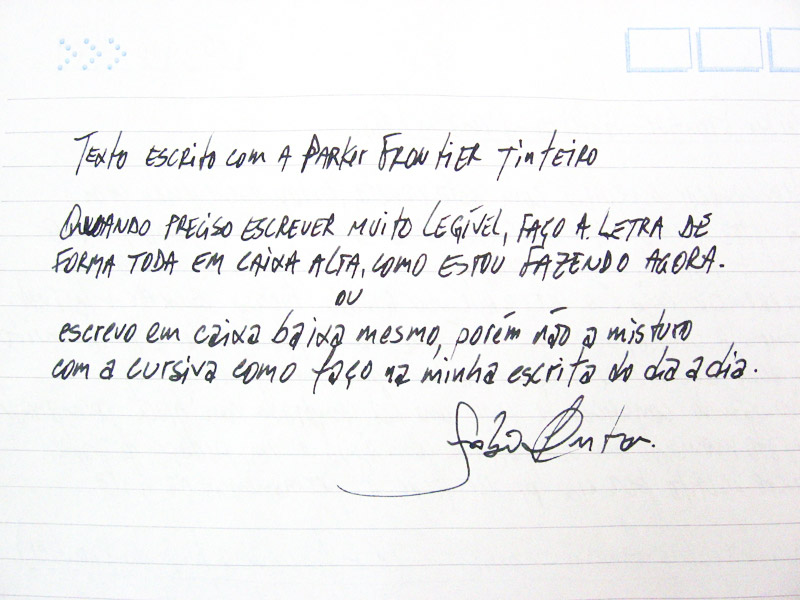 Texto escrito com a Parker Frontier Tinteiro
QUANDO PRECISO ESCREVER MUITO LEGÍVEL, FAÇO A LETRA DE
FORMA TODA EM CAIXA ALTA, COMO ESTOU FAZENDO AGORA.
OU
escrevo em caixa baixa mesmo, porém não a misturo
com a cursiva como faço na minha escrita do dia a dia.